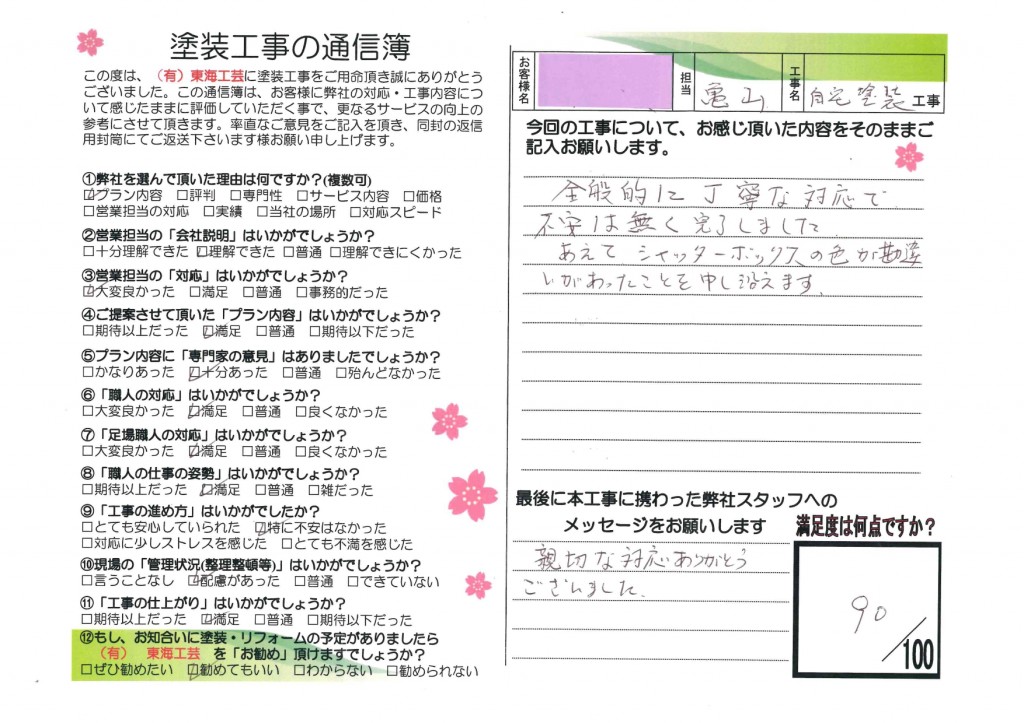 塗装工事の通信簿
この度は、（有）東海工芸に塗装工事をご用命頂き誠にありがとう
ございました。この通信簿は、お客様に弊社の対応・工事内容につ
いて感じたままに評価していただく事で、更なるサービスの向上の
参考にさせて頂きます。率直なご意見をご記入を頂き、同封の返信
用封筒にてご返送下さいます様お願い申し上げます。
①弊社を選んで頂いた理由は何ですか？(複数可)
☑プラン内容 □評判 □専門性 □サービス内容 □価格
□営業担当の対応 □実績 □当社の場所 □対応スピード
②営業担当の「会社説明」はいかがでしょうか？
□十分理解できた ☑理解できた □普通 □理解できにくかった
③営業担当の「対応」はいかがでしょうか？
☑大変良かった □満足 □普通 □事務的だった
④ご提案させて頂いた「プラン内容」はいかがでしょうか？
□期待以上だった ☑満足 □普通 □期待以下だった
⑤プラン内容に「専門家の意見」はありましたでしょうか？
□かなりあった ☑十分あった □普通 □殆んどなかった
⑥「職人の対応」はいかがでしょうか？
□大変良かった ☑満足 □普通 □良くなかった
⑦「足場職人の対応」はいかがでしょうか？
□大変良かった ☑満足 □普通 □良くなかった
⑧「職人の仕事の姿勢」はいかがでしょうか？
□期待以上だった ☑満足 □普通 □雑だった
⑨「工事の進め方」はいかがでしたか？
□とても安心していられた ☑特に不安はなかった
□対応に少しストレスを感じた □とても不満を感じた
⑩現場の「管理状況(整理整頓等)」はいかがでしょうか？
□言うことなし ☑配慮があった □普通 □できていない
⑪「工事の仕上がり」はいかがでしょうか？
□期待以上だった ☑満足 □普通 □期待以下だった
⑫もし、お知合いに塗装・リフォームの予定がありましたら
（有） 東海工芸 を「お勧め」頂けますでしょうか？
□ぜひ勧めたい ☑勧めてもいい □わからない □勧められない
お客様名 担当 亀山 工事名 自宅塗装工事
今回の工事について、お感じ頂いた内容をそのままご
記入お願いします。
全般的に丁寧な対応で
不安は無く完了しました
あえてシャッターボックスの色が勘違
いがあったことを申し沿えます。
最後に本工事に携わった弊社スタッフへの
メッセージをお願いします
親切な対応ありがとう
ございました。
満足度は何点ですか？
90
/100